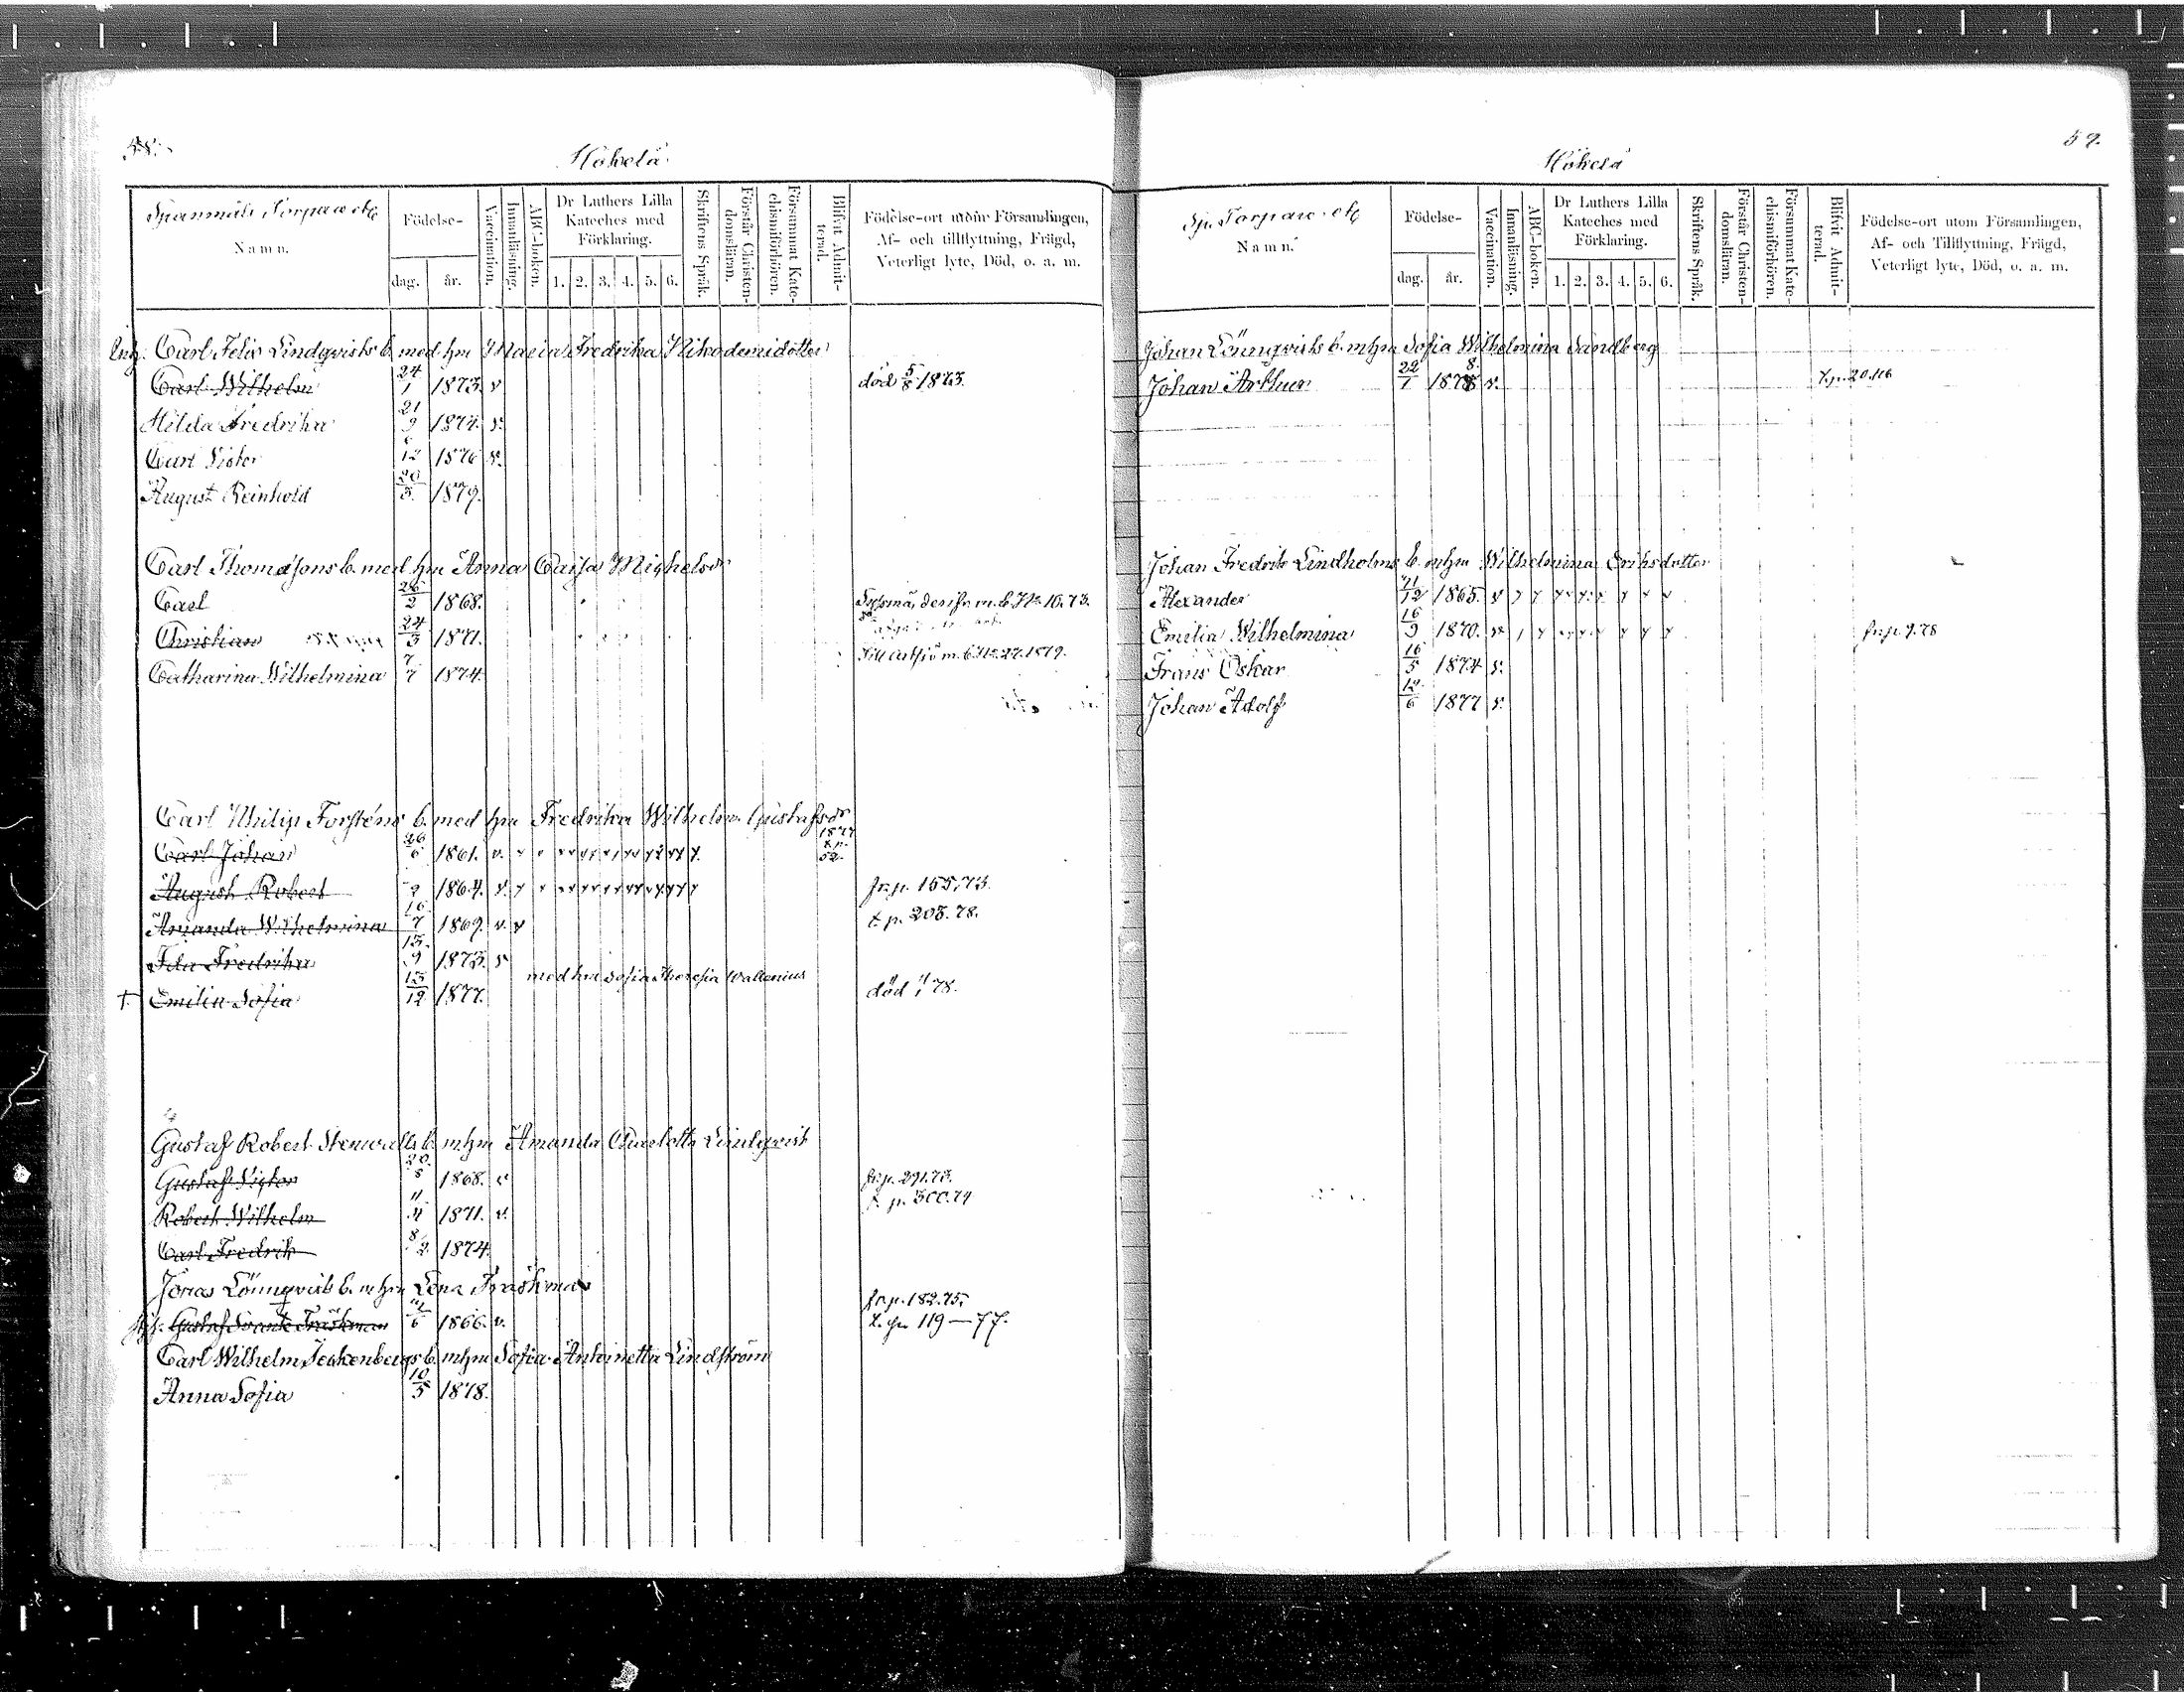 58.
Hökelä
Spannmåls Torpare etc
Namn.
Födelse-
dag. år.
Vaccination.
Innanläsning.
ABC-boken.
Dr Luthers Lilla Kateches med Förklaring.
1. 2. 3. 4. 5. 6.
Skriftens Språk.
Förstår Christen-domsläran.
Försummat Kate-chismiförhören.
Blifvit Admit-terad.
Födelse-ort utom Församlingen,
Af- och tillflyttning, Frägd,
Veterligt lyte, Död, o. a. m.
Carl Felix Lindqvists b. med hu Maria Fredrika Nikodemidotter
Carl Wilhelm 24/1 1873. v död 5/8 1873.
Hilda Fredrika 21/9 1874. v.
Carl Victor 6/12 1876 v.
August Reinhold 20/3 1879.
Carl Thomassons b. med hu Anna Caisa Mighelsdr
Carl 26/2 1868. m. b. No 16.73.
Christian 24/3 1871.
Catharina Wilhelmina 7/7 1874. Till m. b. No 27.1879.
Carl Philip Forsténs b. med hu Fredrika Wilhelm. Gustafsdr
Carl Johan 26/6 1861. v. 1877 t.p. 52.
August Robert 2 1864. v. fr.p. 165.73.
Amanda Wilhelmina 16/7 1869. v. v t.p. 205.78.
Ida Fredrika 13/9 1873. v
med hu Sofia Theresia Wallenius
+ Emilia Sofia 13/12 1877. död 78.
Gustaf Robert Stenwalls b. mhu Amanda Charlotta Lindqvist
Gustaf Victor 20/8 1868. v fr.p. 291.73.
Robert Wilhelm 11/4 1871. v. t. p. 300.74
Carl Fredrik 8/2 1874.
Jonas Lönnqvists b. mhu Lena Träskman
fr.p. 182.75.
Gustaf Svante Träskman 6 1866. v. t. p. 119—77.
Carl Wilhelm Jeskenbergs b. mhu Sofia Antoinetta Lindström
Anna Sofia 10/3 1878.
59.
Hökelä
Sp. Torpare etc
Namn.
Födelse-
dag. år.
Vaccination.
Innanläsning.
ABC-boken.
Dr Luthers Lilla Kateches med Förklaring.
1. 2. 3. 4. 5. 6.
Skriftens Språk.
Förstår Christen-domsläran.
Försummat Kate-chismiförhören.
Blifvit Admit-terad.
Födelse-ort utom Församlingen,
Af- och Tillflyttning, Frägd,
Veterligt lyte, Död, o. a. m.
Johan Lönnqvists b. mhu Sofia Wilhelmina Sandberg
Johan Arthur 22/1 1878 v.
Johan Fredrik Lindholms b. mhu Wilhelmina Eriksdotter
Alexander 21/12 1865. v
Emilia Wilhelmina 16/9 1870. v. fr.p. 9.78
Frans Oskar 16/5 1874 v.
Johan Adolf 12/6 1877 v.